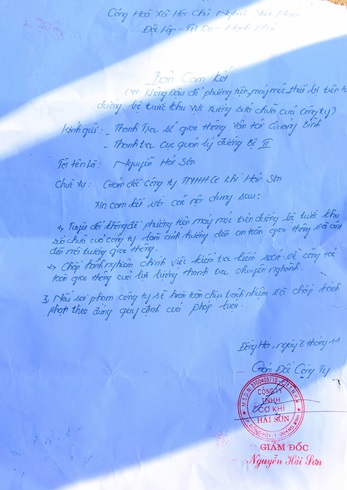 Cộng Hoà Xã Hội Chủ Nghĩa Việt Nam
Độc lập - Tự Do - Hạnh Phúc
Bản Cam Kết
(V/v không Đậu đỗ phương tiện, máy móc thiết bị trên
đường, bộ trước khu vực xưởng sửa chữa của công ty)
Kính gửi: - Thanh Tra sở giao thông Vận tải Quảng Bình
- Thanh tra cục quản lý đường bộ II
Tôi tên là: Nguyễn Hải Sơn
Chức vụ: Giám đốc công ty TNHH Cơ khí Hải Sơn
Xin cam kết với các nội dung sau:
1, Tuyệt đối không để phương tiện máy móc trên đường bộ trước khu
sửa chữa của công ty làm ảnh hưởng đến an toàn giao thông và
đến môi trường giao thông.
2, Chấp hành nghiêm chỉnh việc kiểm tra kiểm soát về công tác
toàn giao thông của lực lượng thanh tra chuyên nghành.
3, Nếu sai phạm công ty sẽ hoàn toàn chịu trách nhiệm và chấp hành
phạt theo đúng quy định của pháp luật.
Đồng Hới, ngày 2 tháng 11
Giám Đốc Công Ty
CÔNG TY
TNHH
CƠ KHÍ
HẢI SƠN
GIÁM ĐỐC
Nguyễn Hải Sơn